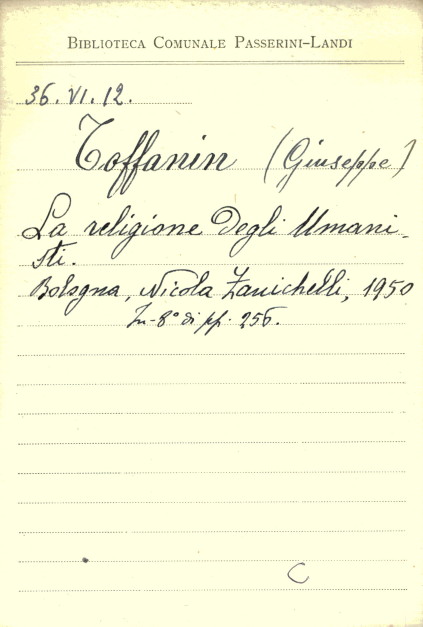 BIBLIOTECA COMUNALE PASSERINI-LANDI
36. VI. 12.
Toffanin (Giuseppe)
La religione degli Umani-
sti.
Bologna, Nicola Zanichelli, 1950
In-8° di pp. 256.
C